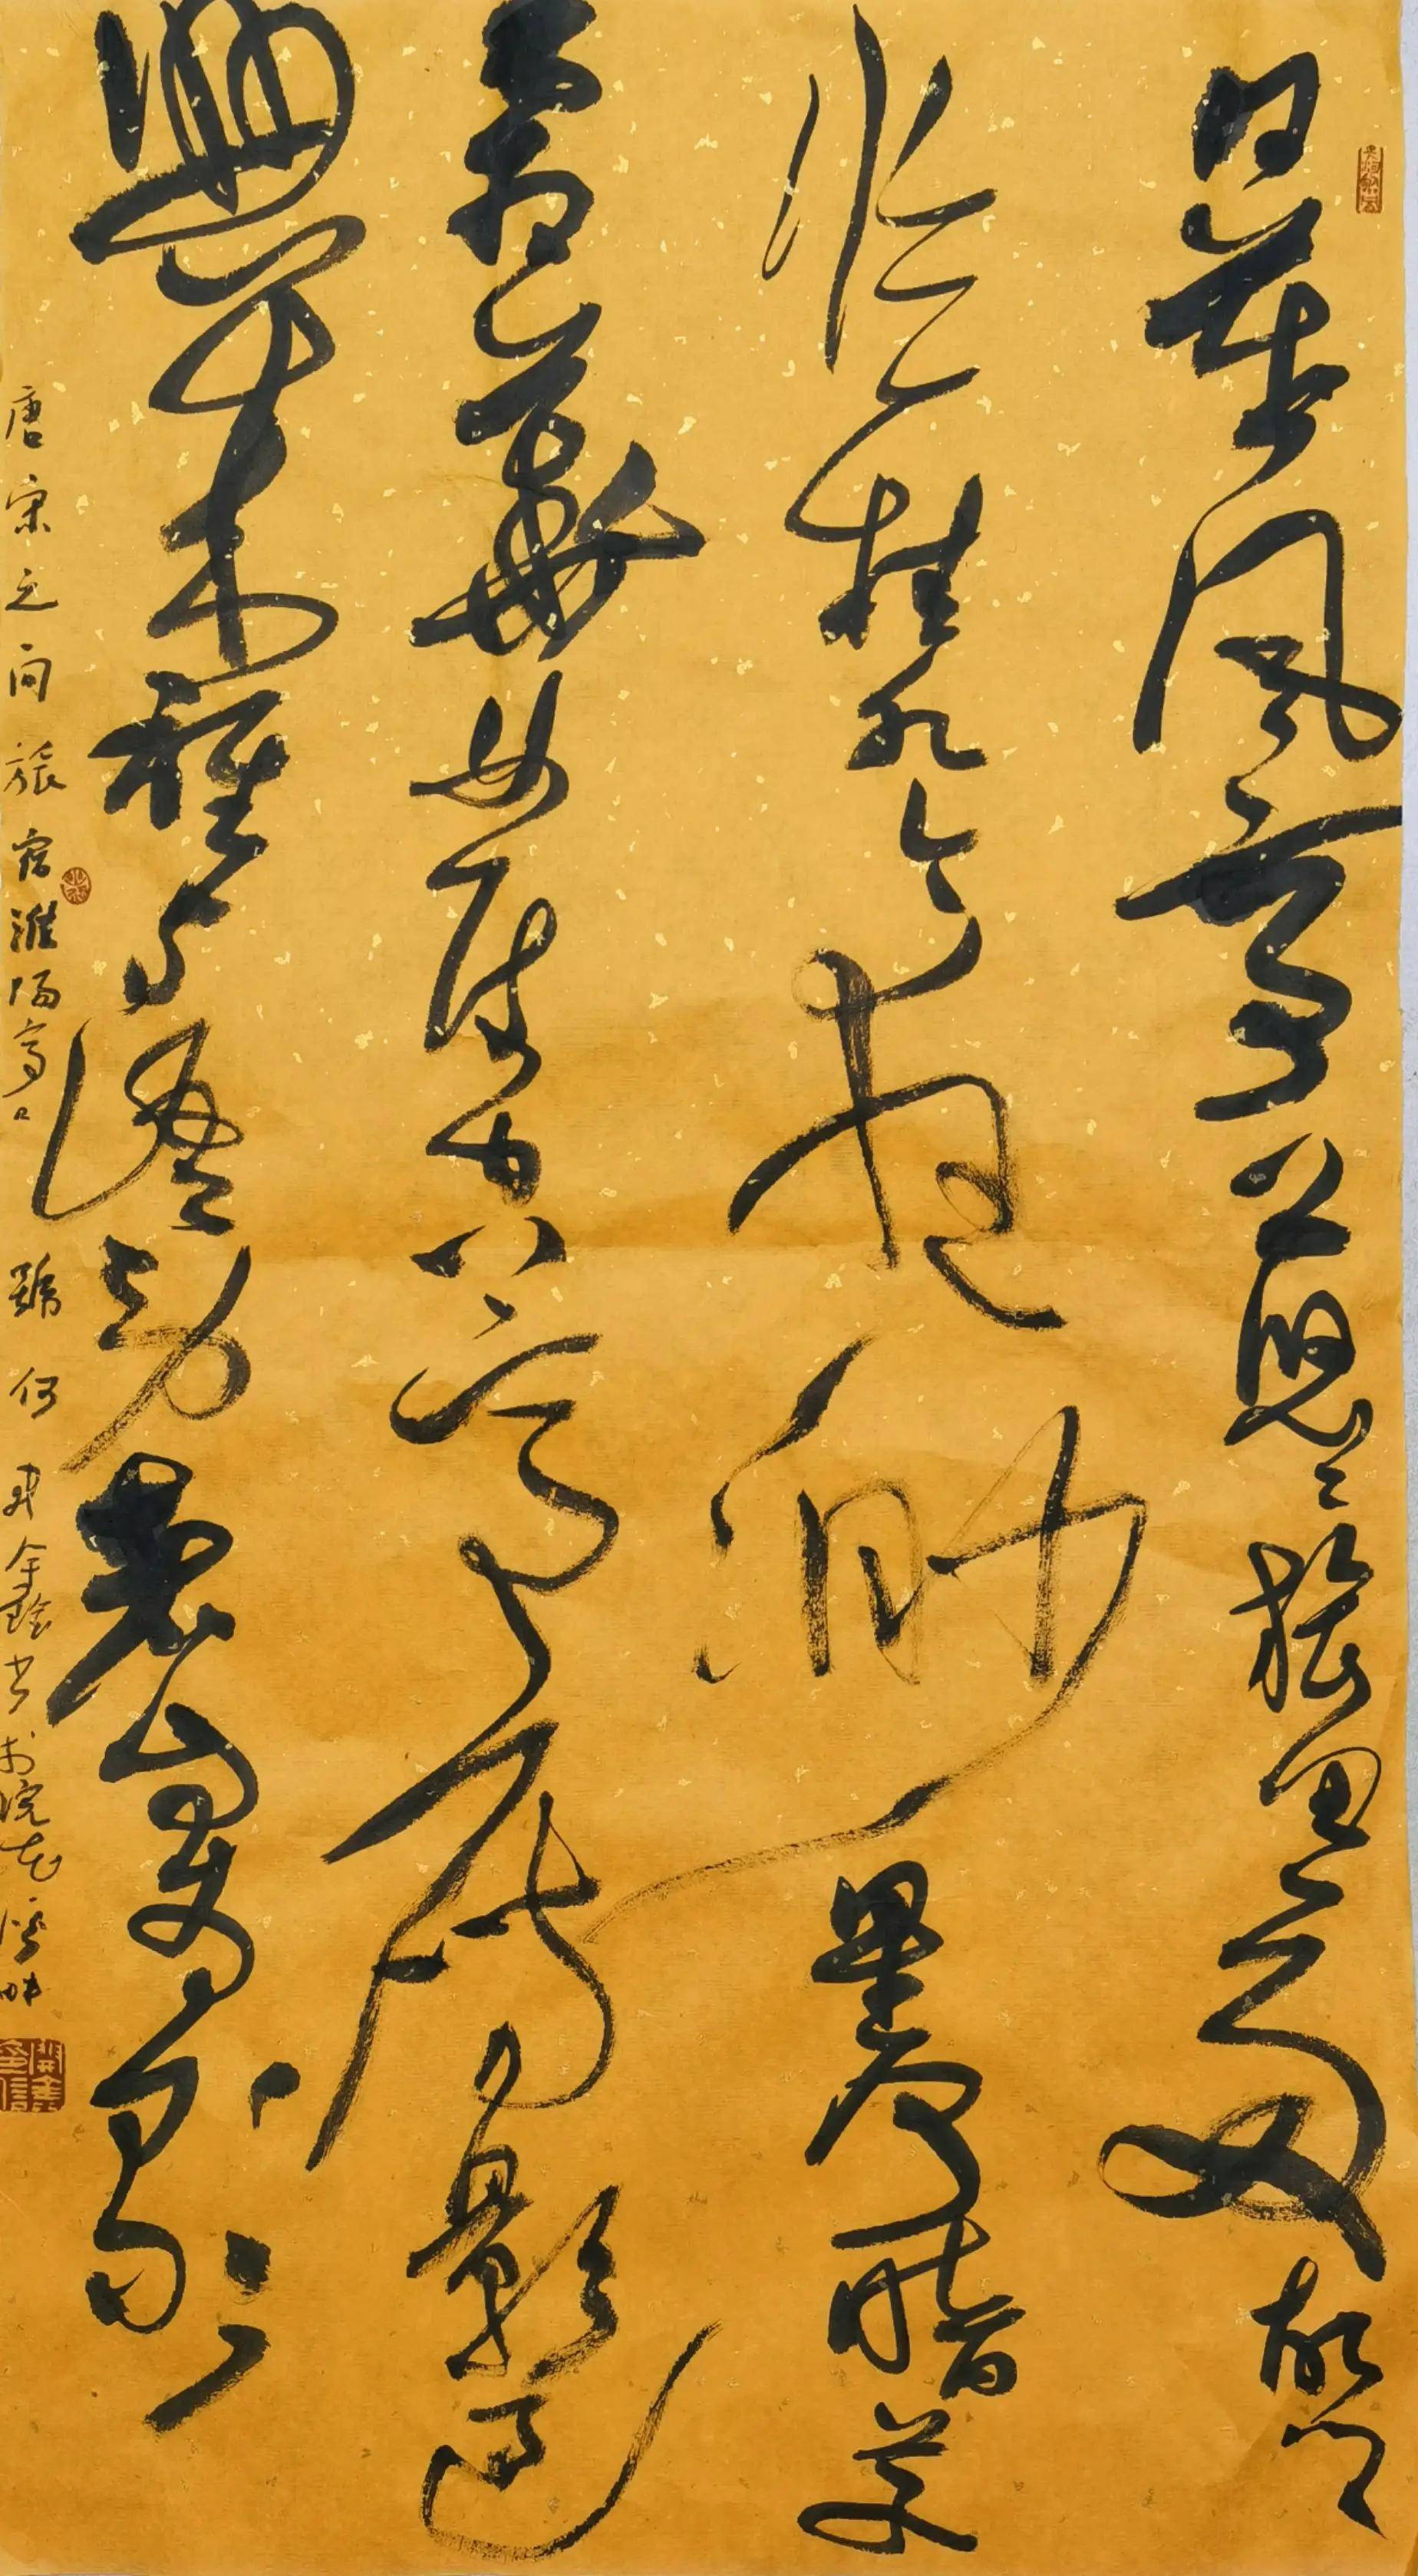 日暮风亭上悠悠旅思多故乡
临桂水今夜渺星河暗草
霜華发空亭雁影过
興来誰与语劳者自为歌
唐宋之问旅宿淮阳亭口號